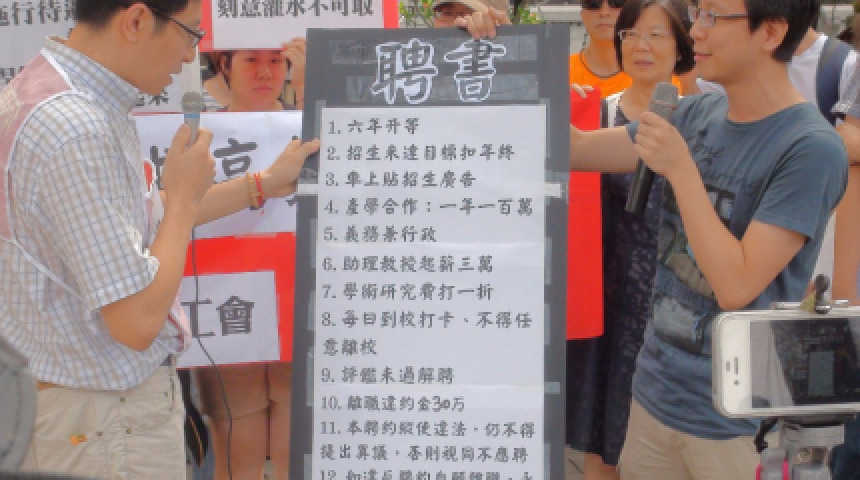 刻意灌水不可取
聘書
1. 六年升等
2. 招生未達目標扣年終
3. 車上貼招生廣告
4. 產學合作：一年一百萬
5. 義務兼行政
6. 助理教授起薪三萬
7. 學術研究費打一折
8. 每日到校打卡、不得任
意離校
9. 評鑑未過解聘
10. 離職違約金30万
11. 本聘約縱使違法，仍不得
提出異議，否則視同不應聘
12. 如違反聘約自願離職，
工會